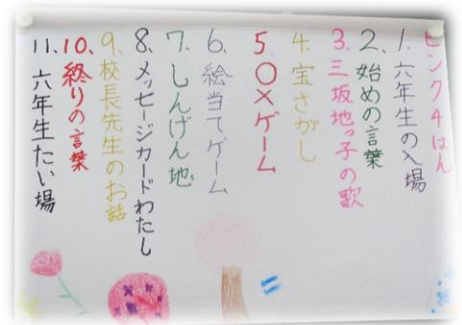 ピンク4はん
1、六年生の入場
2、始めの言葉
3、三坂地っ子の歌
4、宝さがし
5、○×ゲーム
6、絵当てゲーム
7、しんげん地
8、メッセージカードわたし
9、校長先生のお話
10、終りの言葉
11、六年生たい場